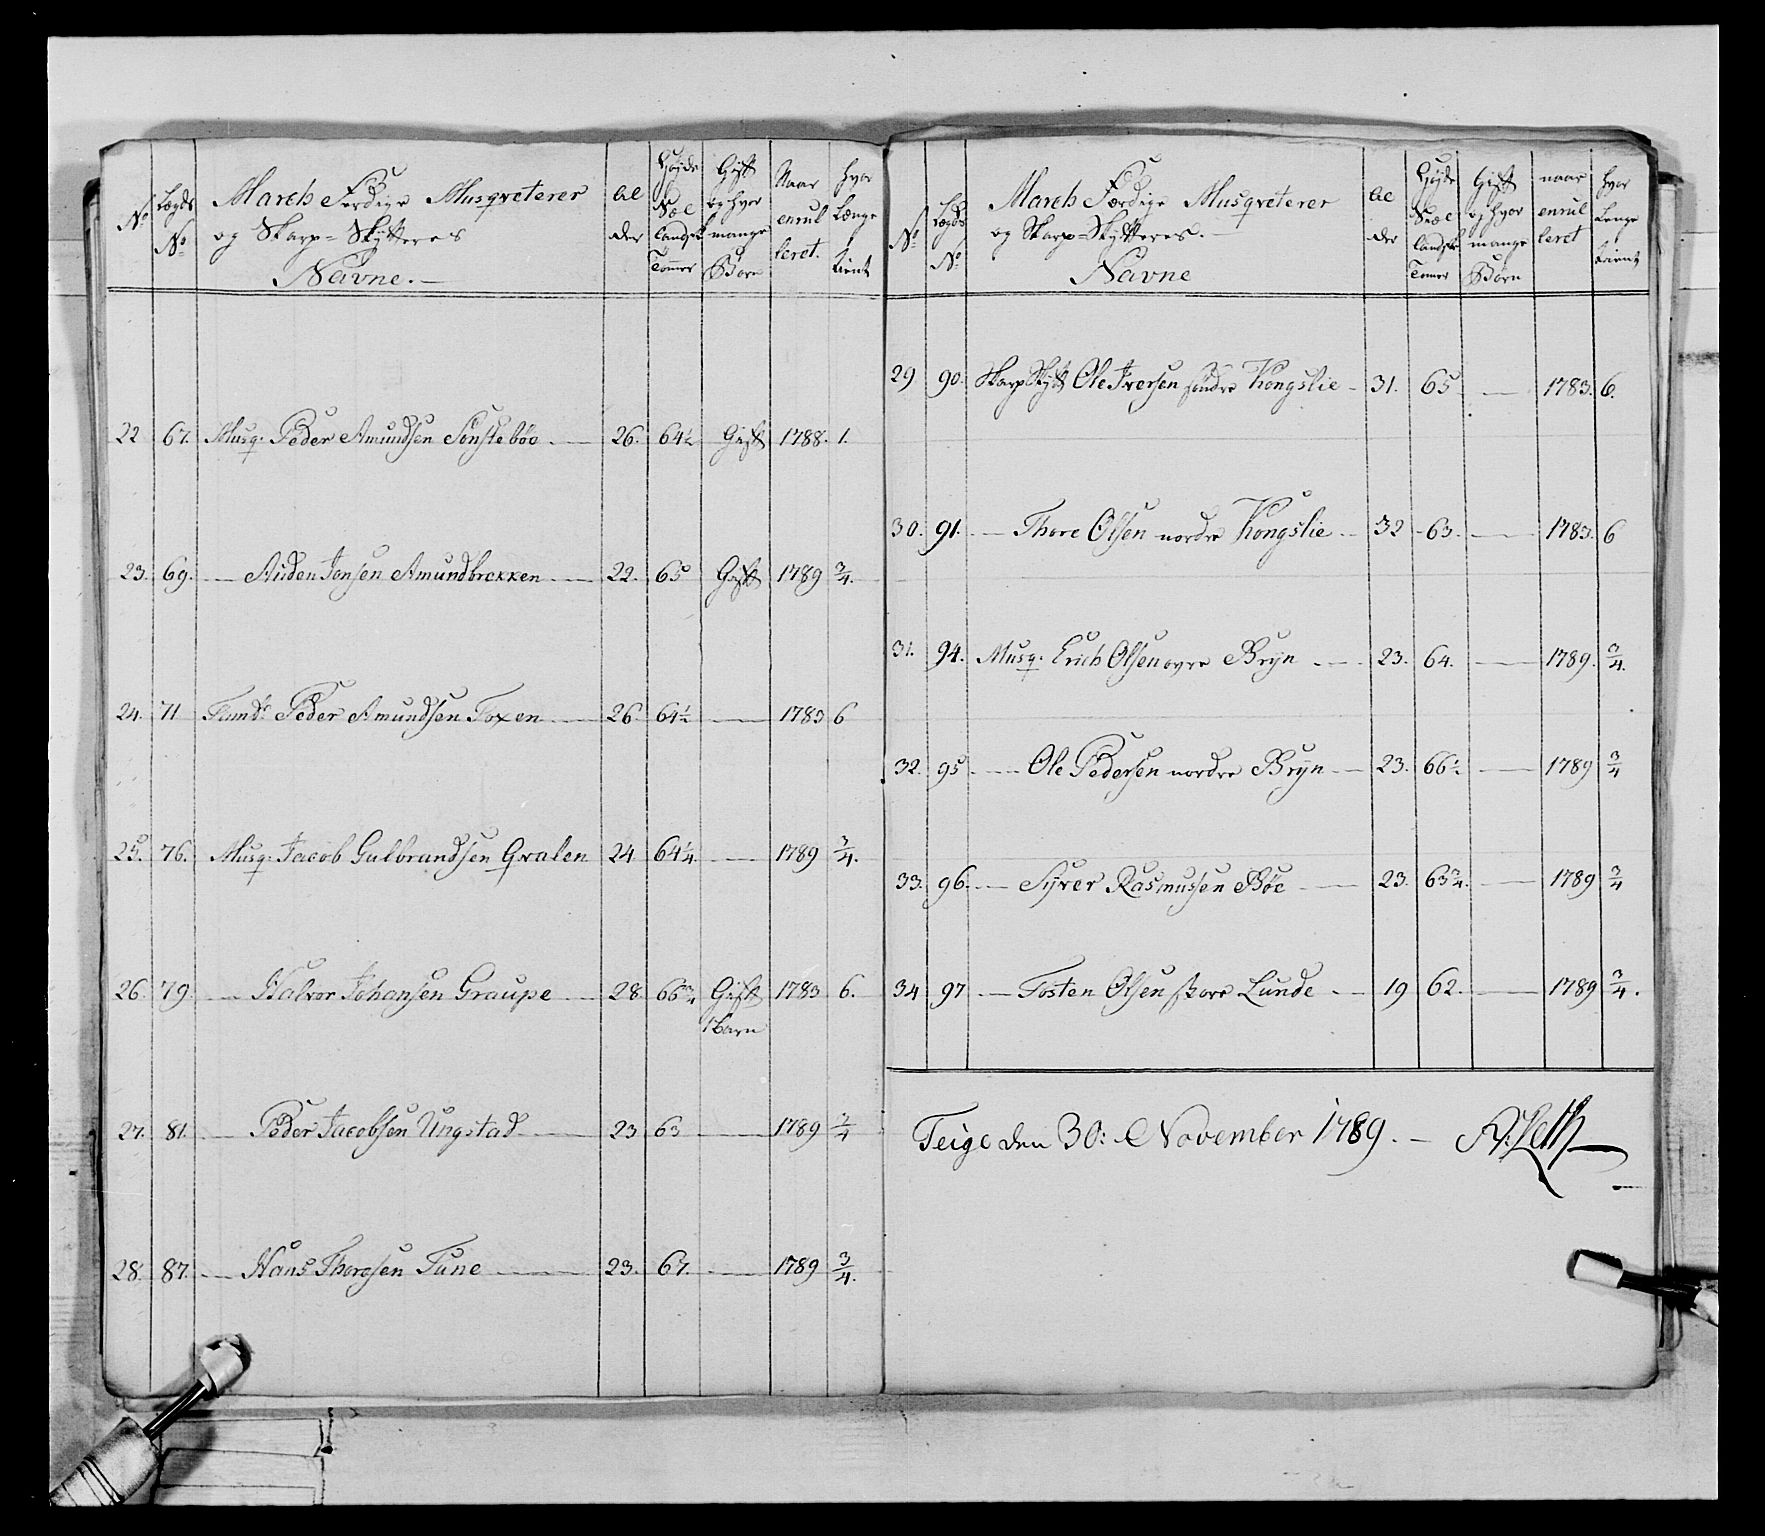 No
Lægds No
March Færdige Musqveterer
og Skarp-Skytteres
Navne.
Alder
Høyde Siællandsk Tommer
Gift og hvor mange Børn
Naar enrulleret.
hvor Længe tient
22 67. Musq. Peder Amundsen Sønstebøe 26. 64½ Gift 1788. 1.
23. 69. — Auden Jonsen Amundbrekken 22. 65 Gift 1789 ¾.
24. 71 Tamb: Peder Amundsen Foxen 26. 64½ — 1783 6
25. 76. Musq. Jacob Gulbrandsen Qvalen 24 64¼ — 1789 ¾.
26. 79. — Halvor Johansen Graupe 28 66¾ Gift 1783 6.
1 Barn
27. 81. — Peder Jacobsen Ungstad 23 63 — 1789 ¾
28. 87. — Hans Thoresen Tune 23. 67. — 1789 ¾.
No
Lægds No
March Færdige Musqveterer
og Skarp-Skytteres.
Navne
Alder
Høyde Siællandsk Tommer
Gift og hvor mange Børn
naar enrulleret
hvor Lenge tient
29 90. Skarp Skytt Ole Iversen søndre Kongslie 31. 65 — 1783. 6.
30. 91. — Thore Olsen nordre Kongslie 32 63. — 1783. 6
31. 94. Musq. Erich Olsen øvre Bryn 23. 64. — 1789. ¾.
32. 95 — Ole Pedersen nordre Bryn 23. 66½ — 1789 ¾
33. 96. — Syver Rasmussen Bøe 23. 63¾. — 1789 ¾
34 97 — Tosten Olsen store Lunde 19 62. — 1789 ¾.
Teige den 30: November 1789. — Leth